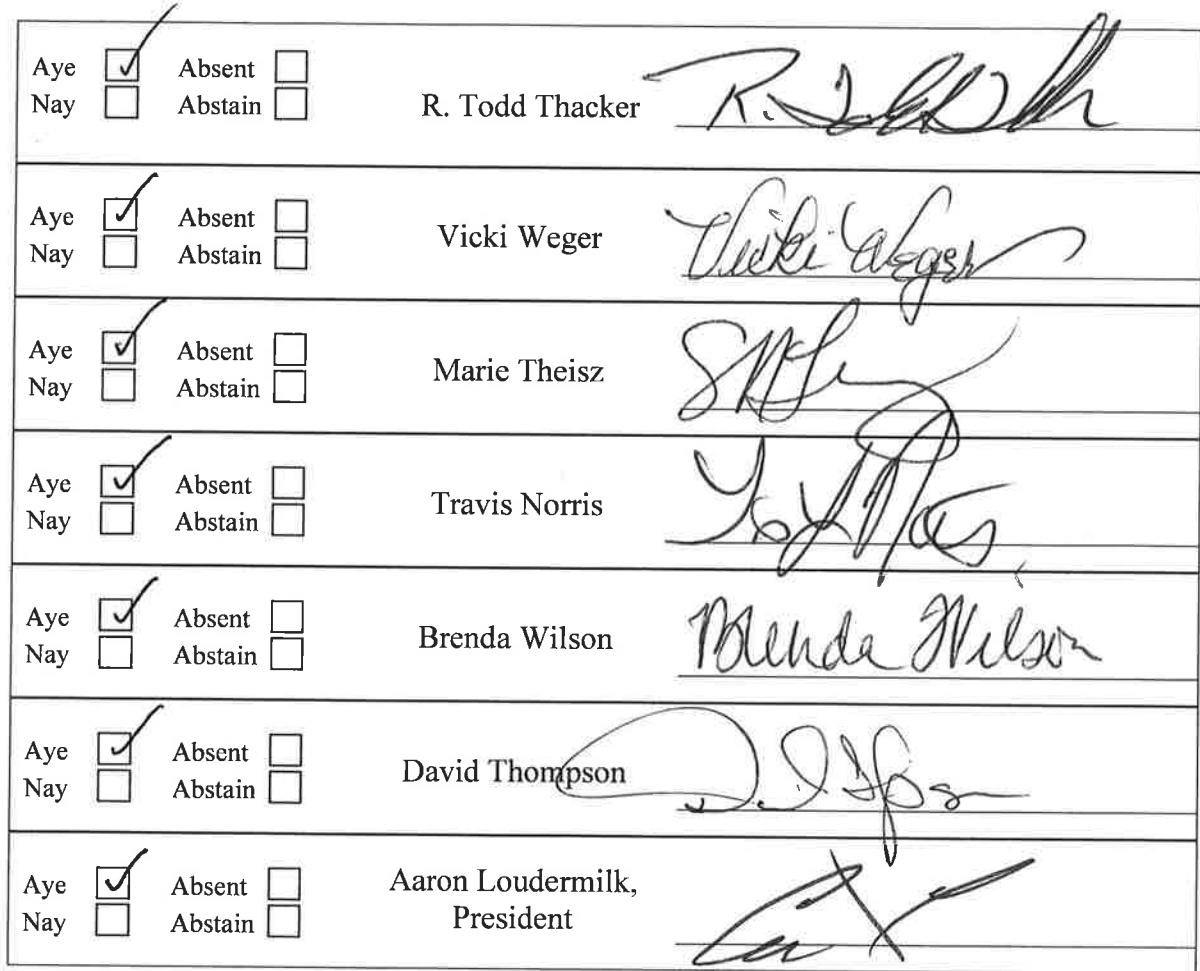 Aye ✓ Absent
Nay Abstain
R. Todd Thacker
Aye ✓ Absent
Nay Abstain
Vicki Weger
Vicki Weger
Aye ✓ Absent
Nay Abstain
Marie Theisz
Aye ✓ Absent
Nay Abstain
Travis Norris
Aye ✓ Absent
Nay Abstain
Brenda Wilson
Brenda Wilson
Aye ✓ Absent
Nay Abstain
David Thompson
Aye ✓ Absent
Nay Abstain
Aaron Loudermilk,
President